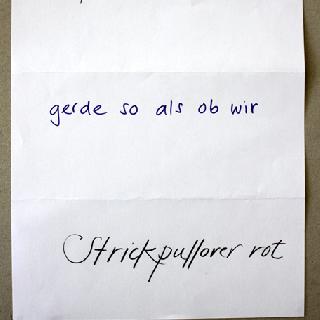 gerde so als ob wir
Strickpullorer rot